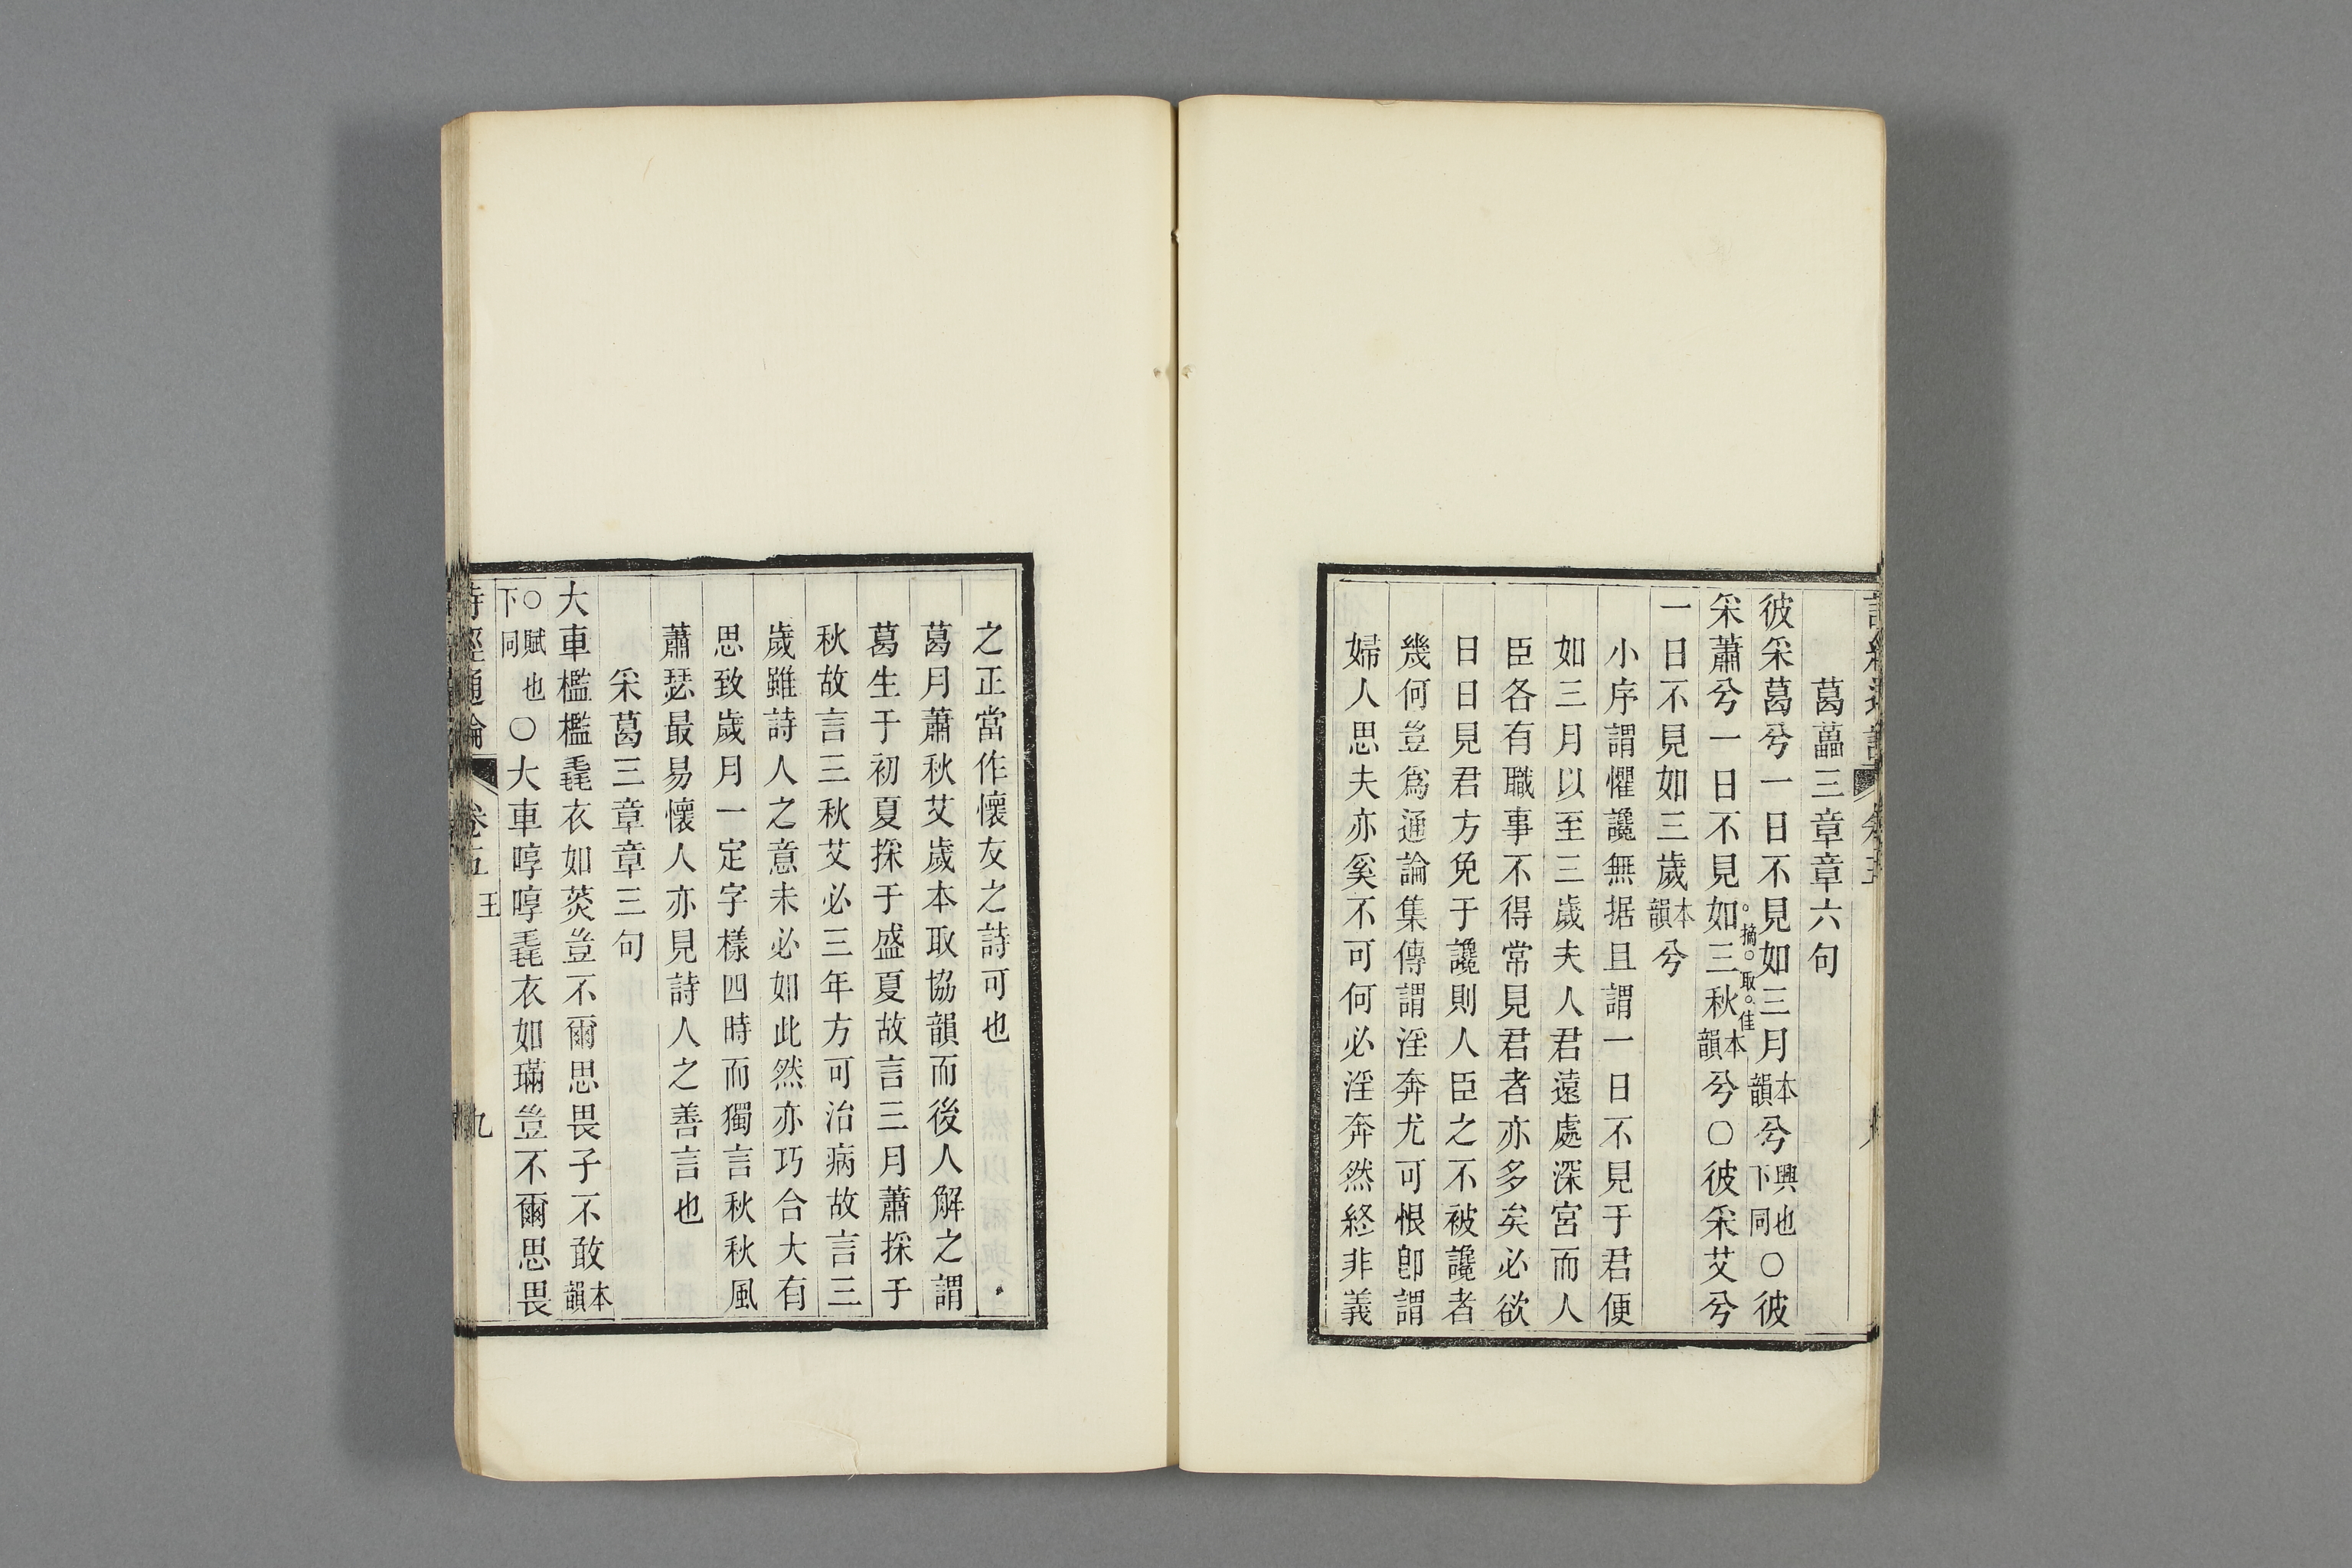 葛藟三章章六句
彼采葛兮一日不見如三月本韻兮興也下同○彼
采蕭兮一日不見如三秋本韻兮○彼采艾兮
摘取佳
一日不見如三歲本韻兮
小序謂懼讒無据且謂一日不見于君便
如三月以至三歲夫人君遠處深宮而人
臣各有職事不得常見君者亦多矣必欲
日日見君方免于讒則人臣之不被讒者
幾何豈爲通論集傳謂淫奔尤可恨卽謂
婦人思夫亦奚不可何必淫奔然終非義
之正當作懷友之詩可也
葛月蕭秋艾歲本取協韻而後人解之謂
葛生于初夏採于盛夏故言三月蕭採于
秋故言三秋艾必三年方可治病故言三
歲雖詩人之意未必如此然亦巧合大有
思致歲月一定字樣四時而獨言秋秋風
蕭瑟最易懷人亦見詩人之善言也
采葛三章章三句
大車檻檻毳衣如菼豈不爾思畏子不敢本韻
○賦也下同○大車啍啍毳衣如璊豈不爾思畏
詩經通論 卷五 王 九